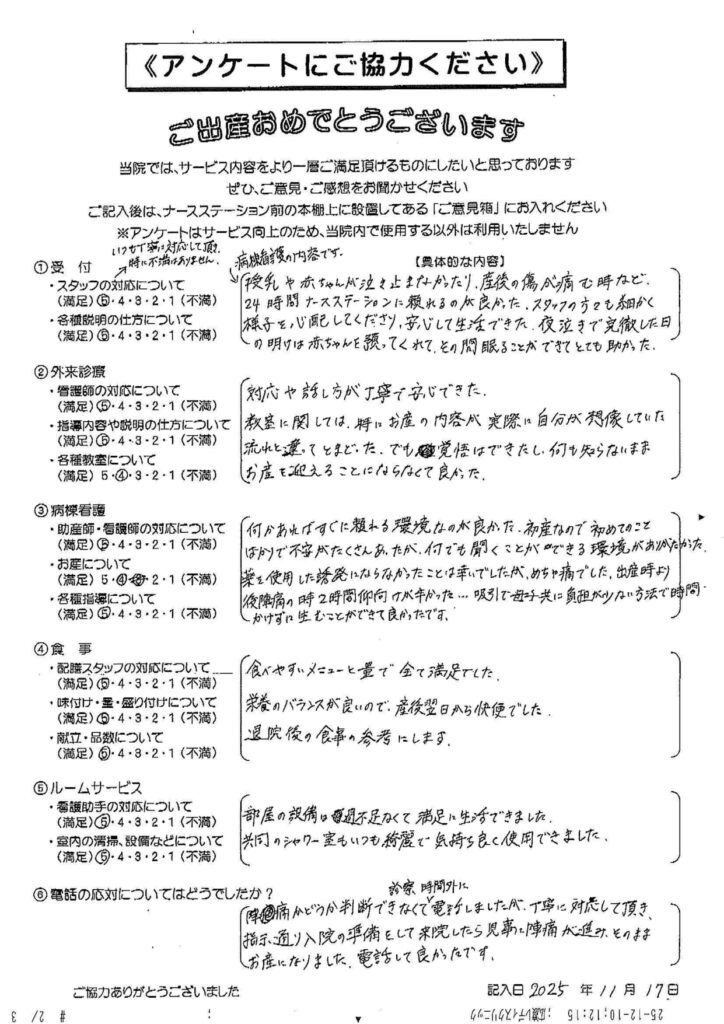 《アンケートにご協力ください》
ご出産おめでとうございます
当院では、サービス内容をより一層ご満足頂けるものにしたいと思っております
ぜひ、ご意見・ご感想をお聞かせください
ご記入後は、ナースステーション前の本棚上に設置してある「ご意見箱」にお入れください
※アンケートはサービス向上のため、当院内で使用する以外は利用いたしません
いつも丁寧に対応して頂き
時に不満はありません。
病棟看護の内容です。
【具体的な内容】
①受 付
・スタッフの対応について
(満足)⑤・4・3・2・1(不満)
・各種説明の仕方について
(満足)⑤・4・3・2・1(不満)
授乳や赤ちゃんが泣き止まなかったり、産後の傷が痛む時など、
24時間ナースステーションに頼れるのが良かった。スタッフの方々も細かく
様子を心配してくださり、安心して生活できた。夜泣きで完徹した日
の明けは赤ちゃんを預ってくれて、その間眠ることができてとても助かった。
②外来診療
・看護師の対応について
(満足)⑤・4・3・2・1(不満)
・指導内容や説明の仕方について
(満足)⑤・4・3・2・1(不満)
・各種教室について
(満足)5・④・3・2・1(不満)
対応や話し方が丁寧で安心できた。
教室に関しては、特にお産の内容が実際に自分が想像していた
流れと違ってとまどった。でも覚悟はできたし、何も知らないまま
お産を迎えることにならなくて良かった。
③病棟看護
・助産師・看護師の対応について
(満足)⑤・4・3・2・1(不満)
・お産について
(満足)5・④・2・1(不満)
・各種指導について
(満足)⑤・4・3・2・1(不満)
何かあればすぐに頼れる環境なのが良かった。初産なので初めてのこと
ばかりで不安がたくさんあったが、何でも聞くことができる環境がありがたかった。
薬を使用した誘発にならなかったことは幸いでしたが、めちゃ痛でした。出産時より
後陣痛の時2時間仰向けが辛かった…吸引で母子共に負担が少ない方法で時間
かけずに生むことができて良かったです。
④食 事
・配膳スタッフの対応について
(満足)⑤・4・3・2・1(不満)
・味付け・量・盛り付けについて
(満足)⑤・4・3・2・1(不満)
・献立・品数について
(満足)⑤・4・3・2・1(不満)
食べやすいメニューと量で全て満足でした。
栄養のバランスが良いので、産後翌日から快便でした。
退院後の食事の参考にします。
⑤ルームサービス
・看護助手の対応について
(満足)⑤・4・3・2・1(不満)
・室内の清掃、設備などについて
(満足)⑤・4・3・2・1(不満)
部屋の設備は過不足なくて満足に生活できました。
共同のシャワー室もいつも綺麗で気持ち良く使用できました。
⑥電話の応対についてはどうでしたか?
診察時間外に
陣痛かどうか判断できなくて電話しましたが、丁寧に対応して頂き、
指示通り入院の準備をして来院したら見事に陣痛が進み、そのまま
お産になりました。電話して良かったです。
ご協力ありがとうございました
記入日 2025 年 11 月 17日
25-12-10;12:15
# 2/ 3